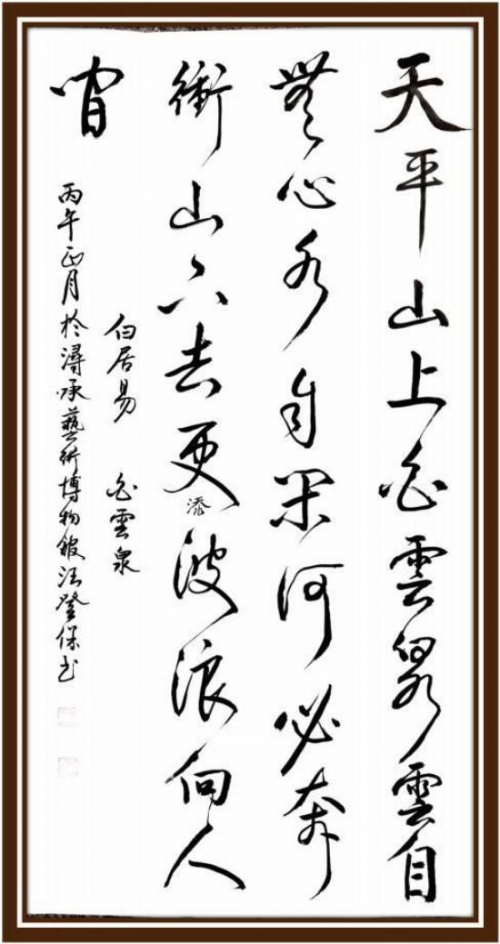 天平山上白雲泉雲自
無心水自閑何必奔
衝山下去更添波浪向人
間
白居易 白雲泉
丙午正月於潯承藝術博物館登保书